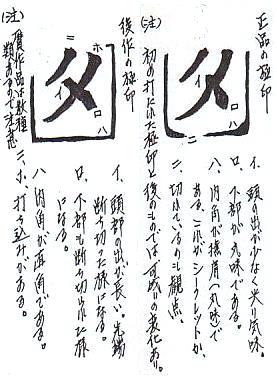 正品の極印
イ、頭の出が少ない尖り気味。
ロ、下部が丸味である。
ハ、内角が撲角(丸味)で
ある、これがシークレットか、
ニ、切れているのも観点、
(注) 初め打たれた極印と後のものでは可成りの変化あり。
ロ
イ
ハ
ニ
後作の極印
イ、頭部の出が長い、先端
断ち切った様になる。
ロ、下部も断ち切れた様
になる。
ハ、内角が直角である。
ニ、ホ、打ち込みがある。
(注) 贋作品は数種
類あるので注意
ホ
ロ
イ
ハ
ニ